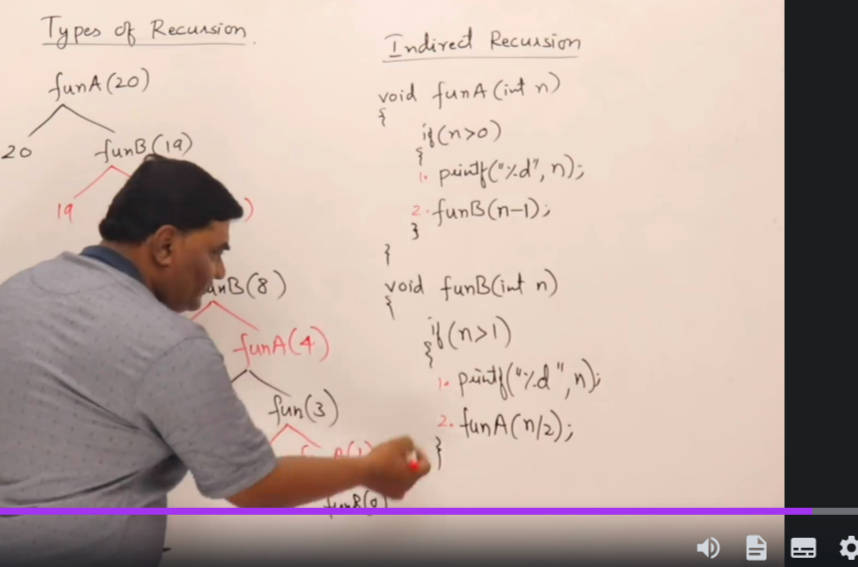 Types of Recursion.
funA(20)
20 funB(19)
19 )
nB(8)
funA(4)
fun(3)
A(1)
funB(0)
Indirect Recursion
void funA(int n)
{
if(n>0)
{
1. printf("%d", n);
2. funB(n-1);
}
}
void funB(int n)
{
if(n>1)
{
1. printf("%d", n);
2. funA(n/2);
}